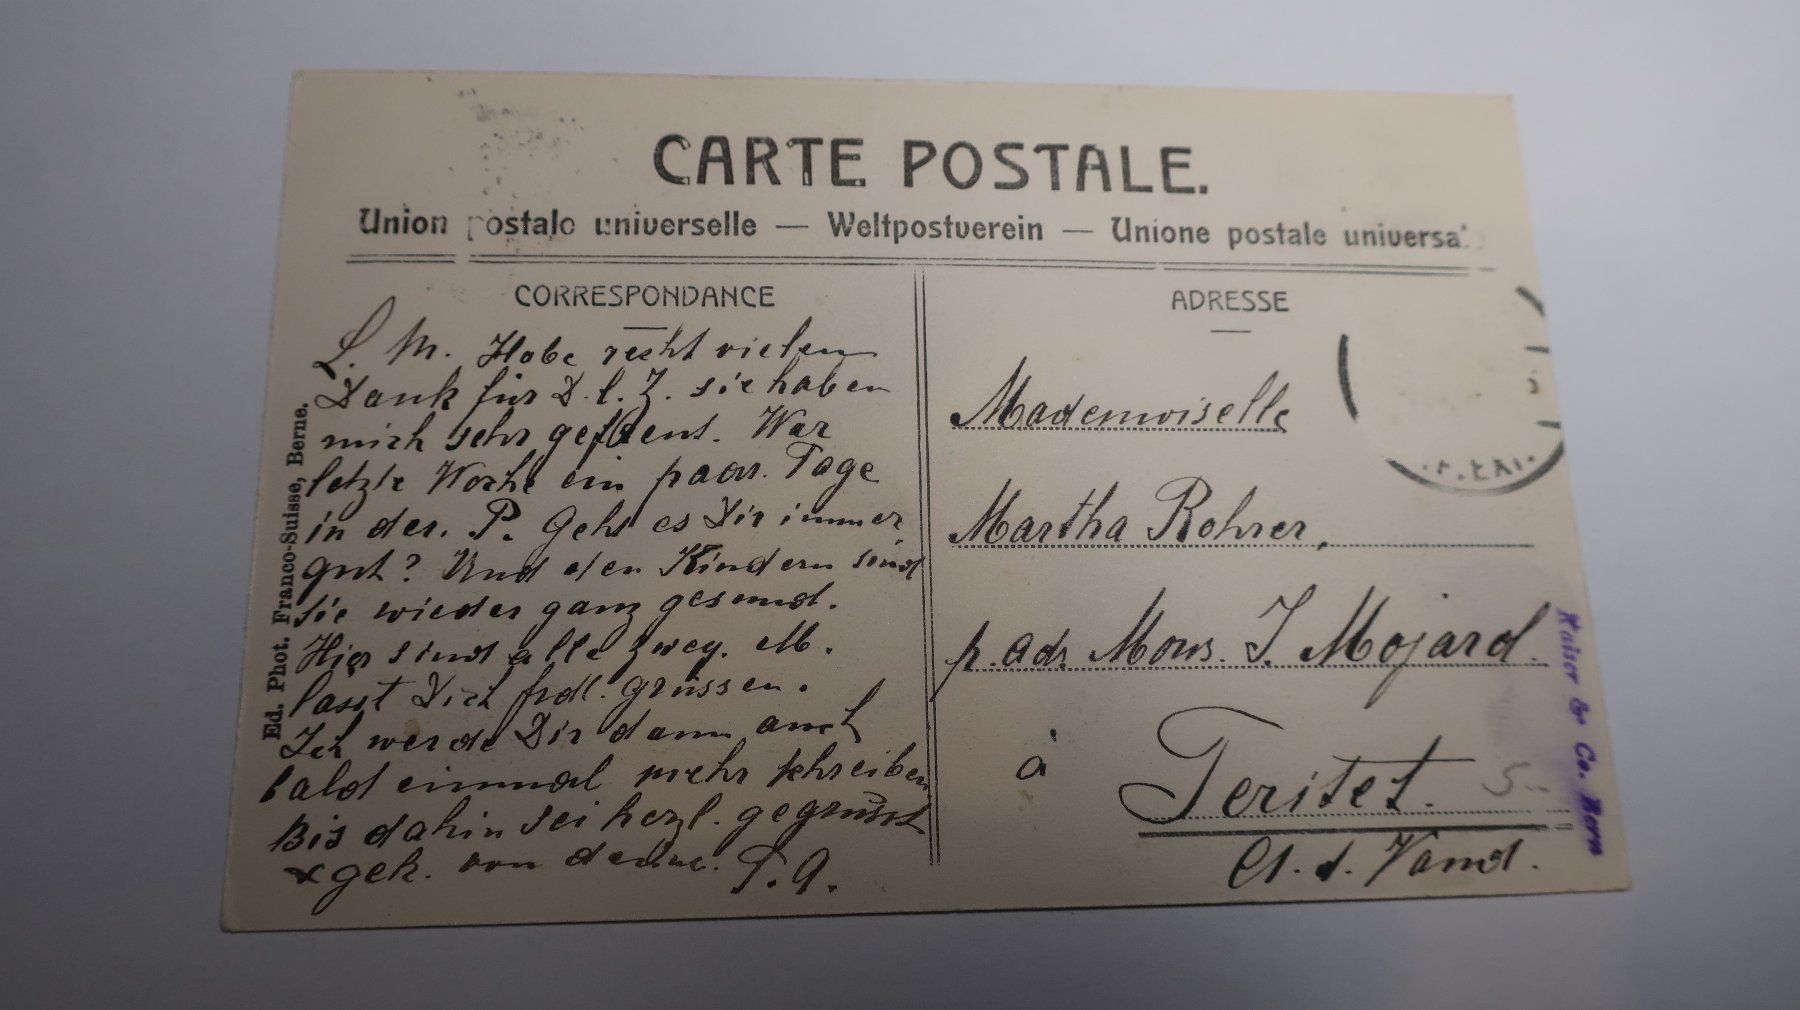 CARTE POSTALE.
Union postale universelle — Weltpostverein — Unione postale universa
CORRESPONDANCE
L. M. Habe recht vielen
Dank für D. l. Z. sie haben
mich sehr gefreut. War
letzte Woche ein paar. Tage
in der. P. Geht es Dir immer
gut? Und den Kindern sind
sie wieder ganz gesund.
Hier sind alle zweg. M.
lässt Dich frdl. grüssen.
Ich werde Dir dann auch
bald einmal mehr schreiben.
Bis dahin sei herzl. gegrüsst
& gek. von deiner. 
Ed. Phot. Franco-Suisse, Berne.
ADRESSE
Mademoiselle
Martha Rohrer,
p. adr. Mons. J. Mojard.
à Teritet.
Ct. d. Vaud.
Kaiser & Co. Bern